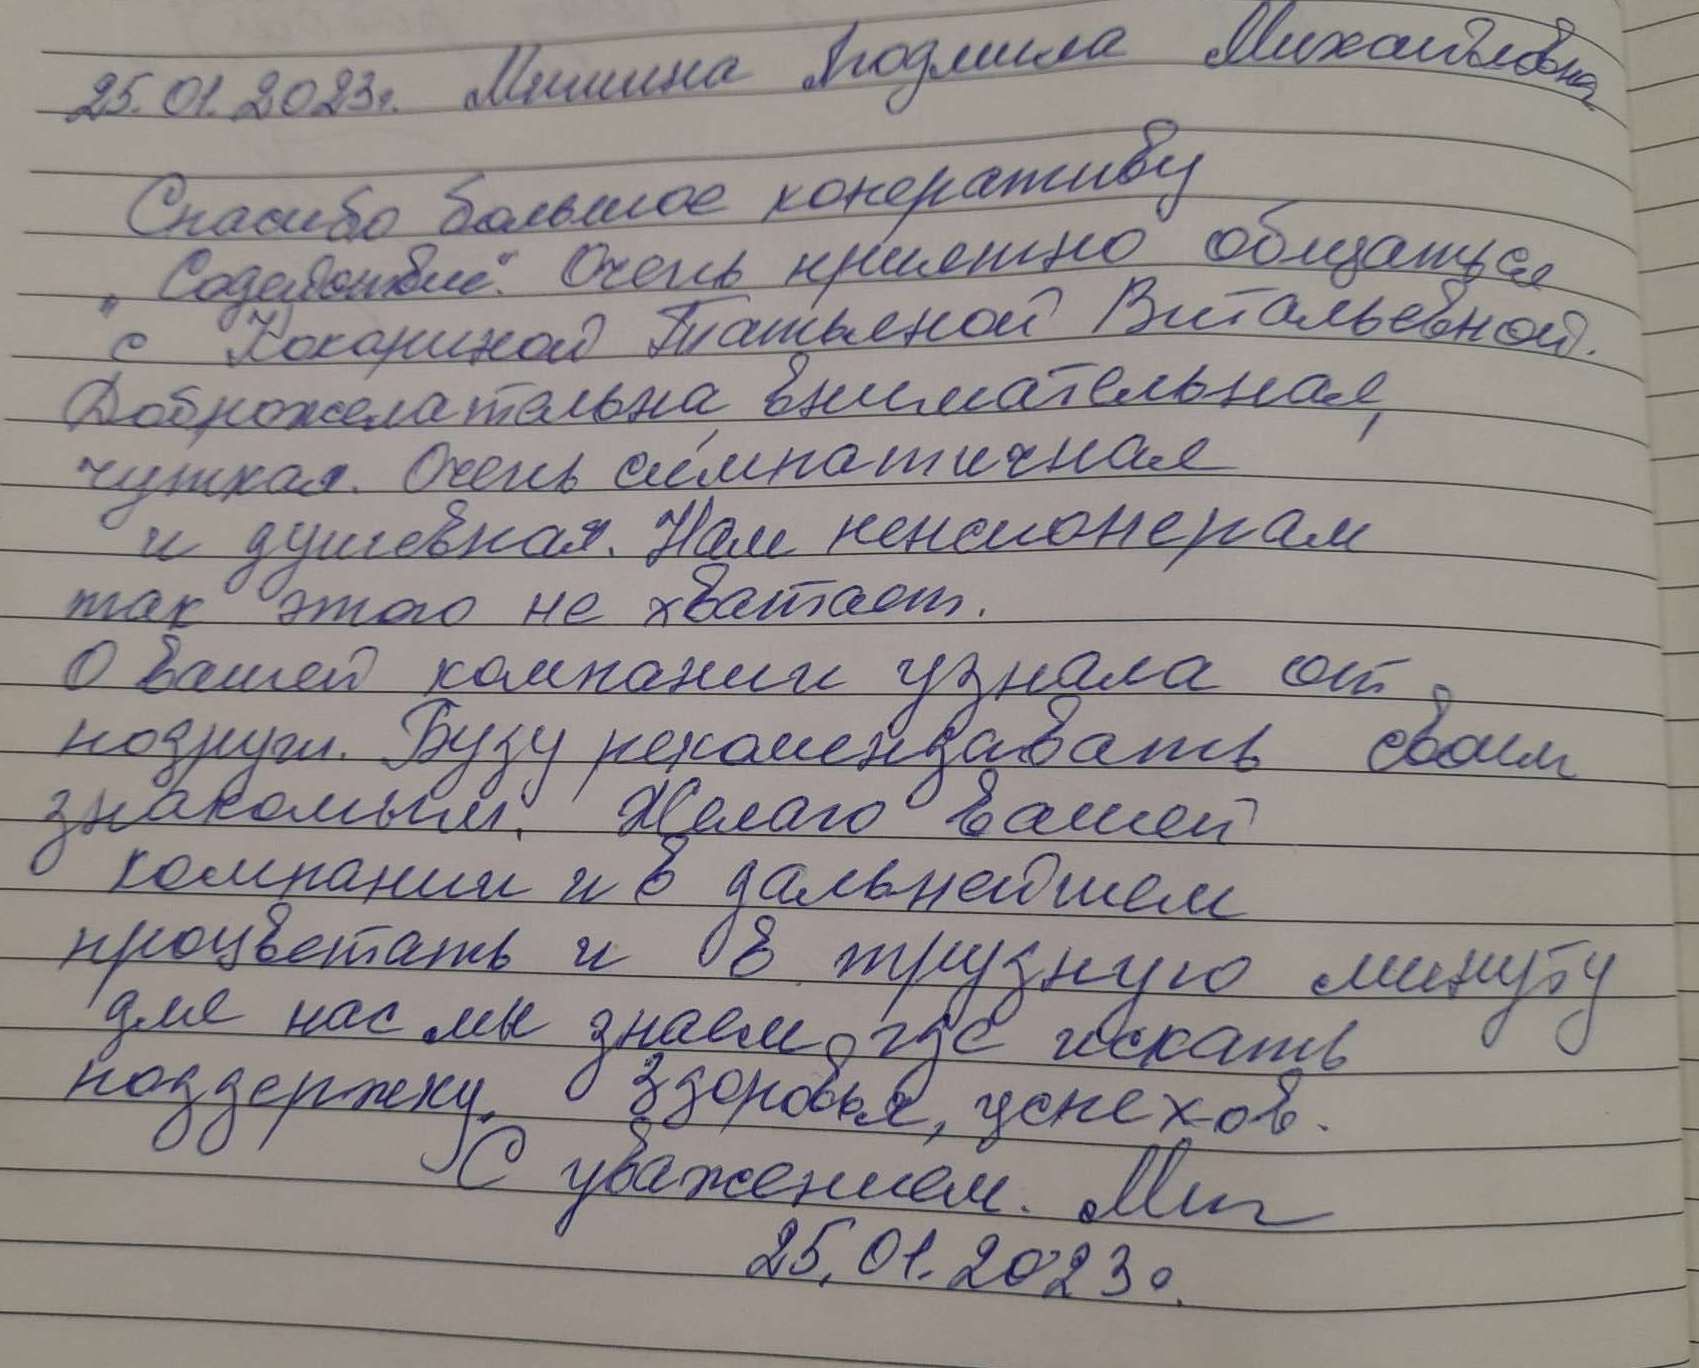 25.01.2023г. Мишина Людмила Михайловна
Спасибо большое коперативу
"Содействие". Очень приятно общаться
с Кокариной Татьяной Витальевной.
Доброжелательна внимательная,
чуткая. Очень симпатичная
и душевная. Нам пенсионерам
так этого не хватает.
О вашей компании узнала от
подруги. Буду рекомендавать своим
знакомым. Желаю вашей
компании и в дальнейшем
процветать и в трудную минуту
для нас мы знаем где искать
поддержку. Здоровья, успехов.
С уважением.
25.01.2023г.